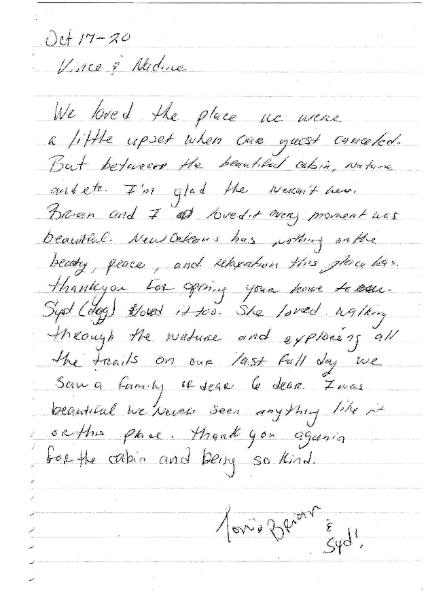 Oct 17-20
Vince & Nadine
We loved the place we were
a little upset when one guest canceled.
But between the beautiful cabin, nature
and etc. I'm glad the weren't here.
Brian and I loved it every moment was
beautiful. New Orleans has nothing on the
beauty, peace, and relaxation this place has.
thankyou for opning your home to
Syd (dog) loved it too. She loved walking
through the nature and exploring all
the trails on our last full day we
saw a family of dear 6 dear. I was
beautiful we never seen anything like it
or this place. thank you again
for the cabin and being so kind.
Brian
&
Syd!